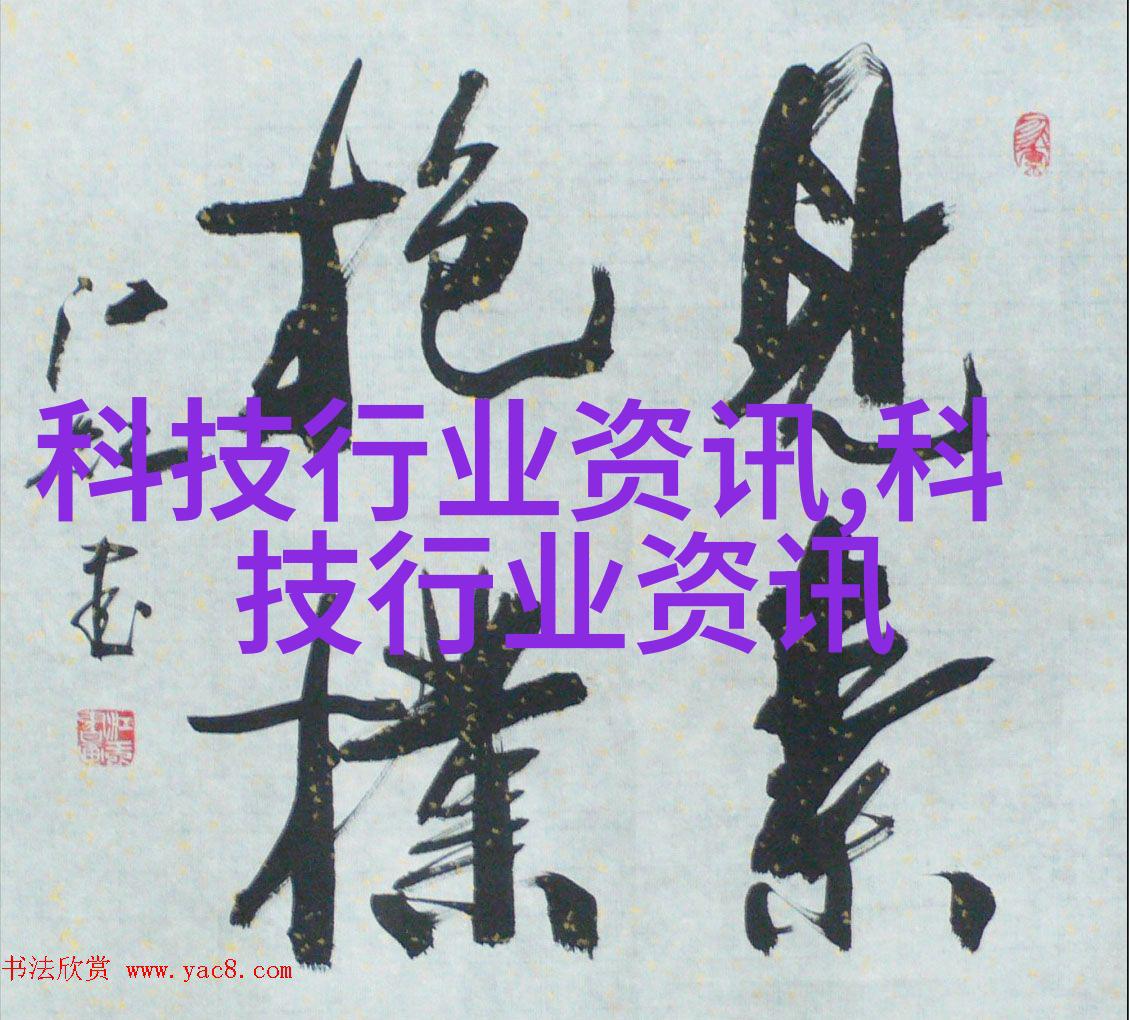 見素
抱樸
科技行业资讯,科
技行业资讯
书法欣赏 www.yac8.com